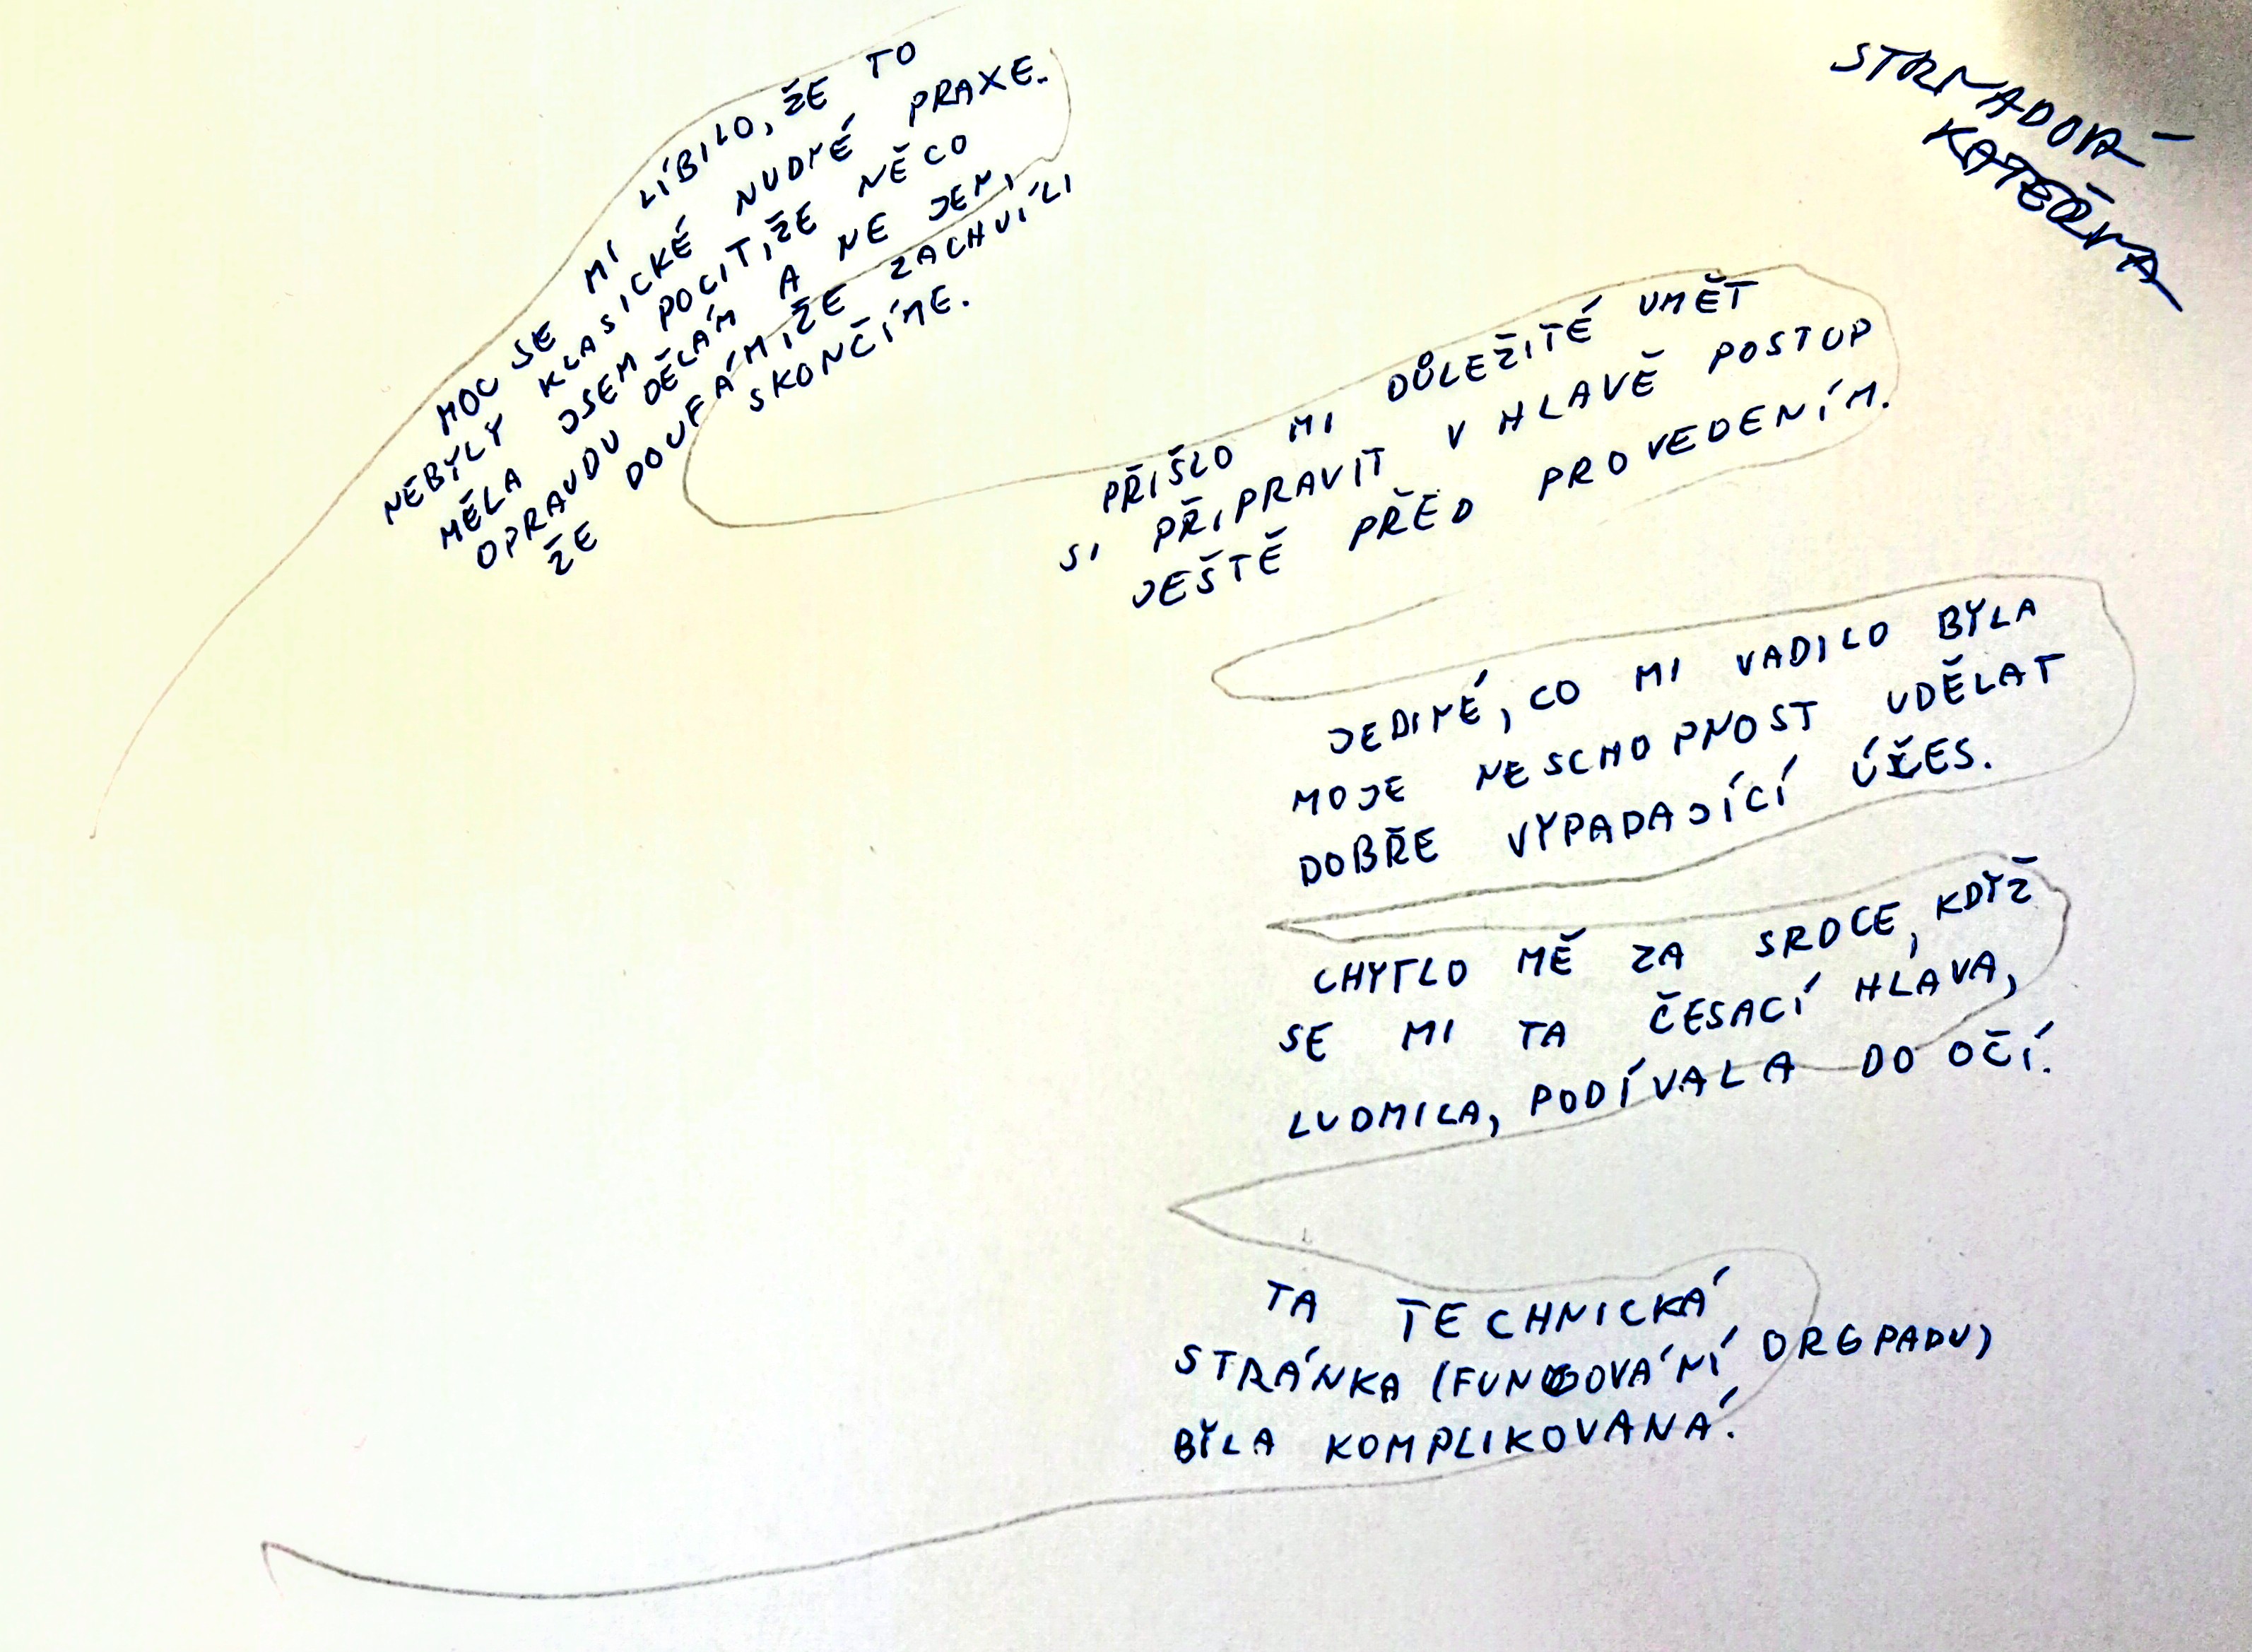 STRNADOVÁ
KATEŘINA
MOC SE MI LÍBILO, ŽE TO
NEBYLY KLASICKÉ NUDNÉ PRAXE.
MĚLA JSEM POCIT, ŽE NĚCO
OPRAVDU DĚLÁM A NE JEN,
ŽE DOUFÁM, ŽE ZACHVÍLI
SKONČÍME.
PŘIŠLO MI DŮLEŽITÉ UMĚT
SI PŘIPRAVIT V HLAVĚ POSTUP
JEŠTĚ PŘED PROVEDENÍM.
JEDINÉ, CO MI VADILO BYLA
MOJE NESCHOPNOST UDĚLAT
DOBŘE VYPADAJÍCÍ ÚČES.
CHYTLO MĚ ZA SRDCE, KDYŽ
SE MI TA ČESACÍ HLAVA,
LUDMILA, PODÍVALA DO OČÍ.
TA TECHNICKÁ
STRÁNKA (FUNGOVÁNÍ ORGPADU)
BYLA KOMPLIKOVANÁ.